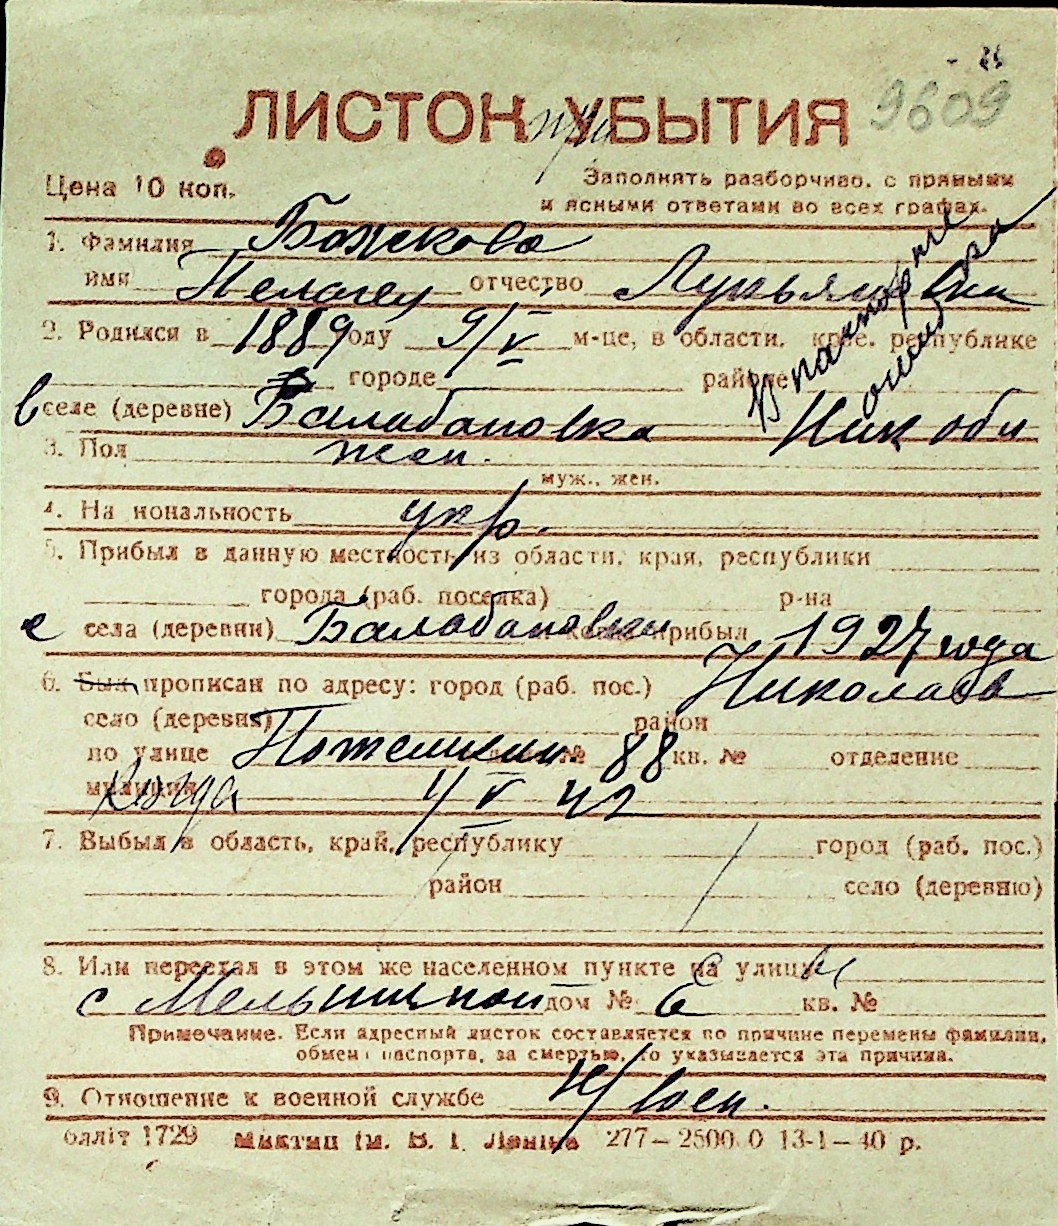 9609
ЛИСТОК УБЫТИЯ
Цена 10 коп.
Заполнять разборчиво, с прямыми
и ясными ответами во всех графах.
1. Фамилия Божкова
имя Пелагея отчество Лукьяновна
В паспорте ошибка
2. Родился в 1889 году 9/V м-це, в области, крае, республике
городе районе
в селе (деревне) Балабановка Ник обл
3. Пол жен.
муж., жен.
4. Национальность укр.
5. Прибыл в данную местность из области, края, республики
города (раб. поселка) р-на
с села (деревни) Балабановки прибыл 1927 года
6. Был прописан по адресу: город (раб. пос.) Николаев
село (деревня) район
по улице Потемкин № 88 кв. № отделение
милиции Когда 4/V 42
7. Выбыл в область, край, республику город (раб. пос.)
район село (деревню)
8. Или переехал в этом же населенном пункте на улицу
дом № 6 кв. №
Примечание. Если адресный листок составляется по причине перемены фамилии,
обмена паспорта, за смертью, то указывается эта причина.
9. Отношение к военной службе н/воен.
1729 277—2500.0 13-1—40 р.